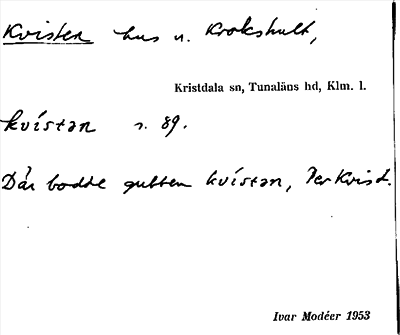 Kvisten hus u. Krokshult,
Kristdala sn, Tunaläns hd, Klm. l.
kvístən s. 89.
Där bodde gubben kvístən, Per Kvist.
Ivar Modéer 1953